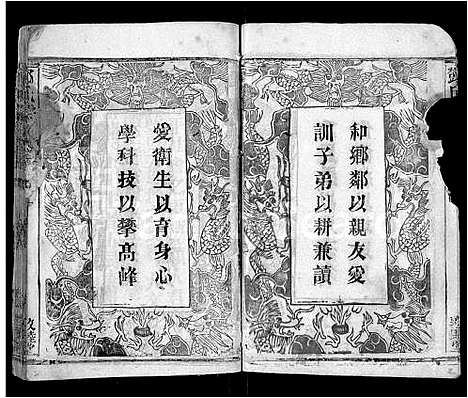 和鄉鄰以親友愛
訓子弟以耕兼讀
愛衛生以育身心
學科技以攀高峰